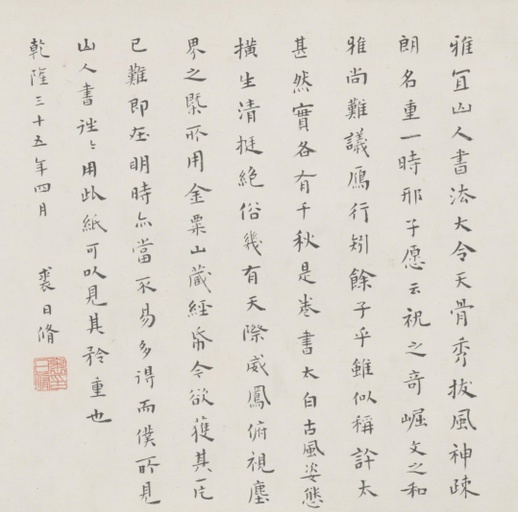 雅宜山人書法大令天骨秀拔風神疎
朗名重一時邢子愿云祝之奇崛文之和
雅尚難議鴈行矧餘子乎雖似稱許太
甚然實各有千秋是卷書太白古風姿態
橫生清挺絕俗幾有天際威鳳俯視塵
界之槩所用金粟山藏經帋今欲獲其一片
已難即在明時亦當不易多得而僕所見
山人書往〻用此紙可以見其矜重也
乾隆三十五年四月 裘日脩